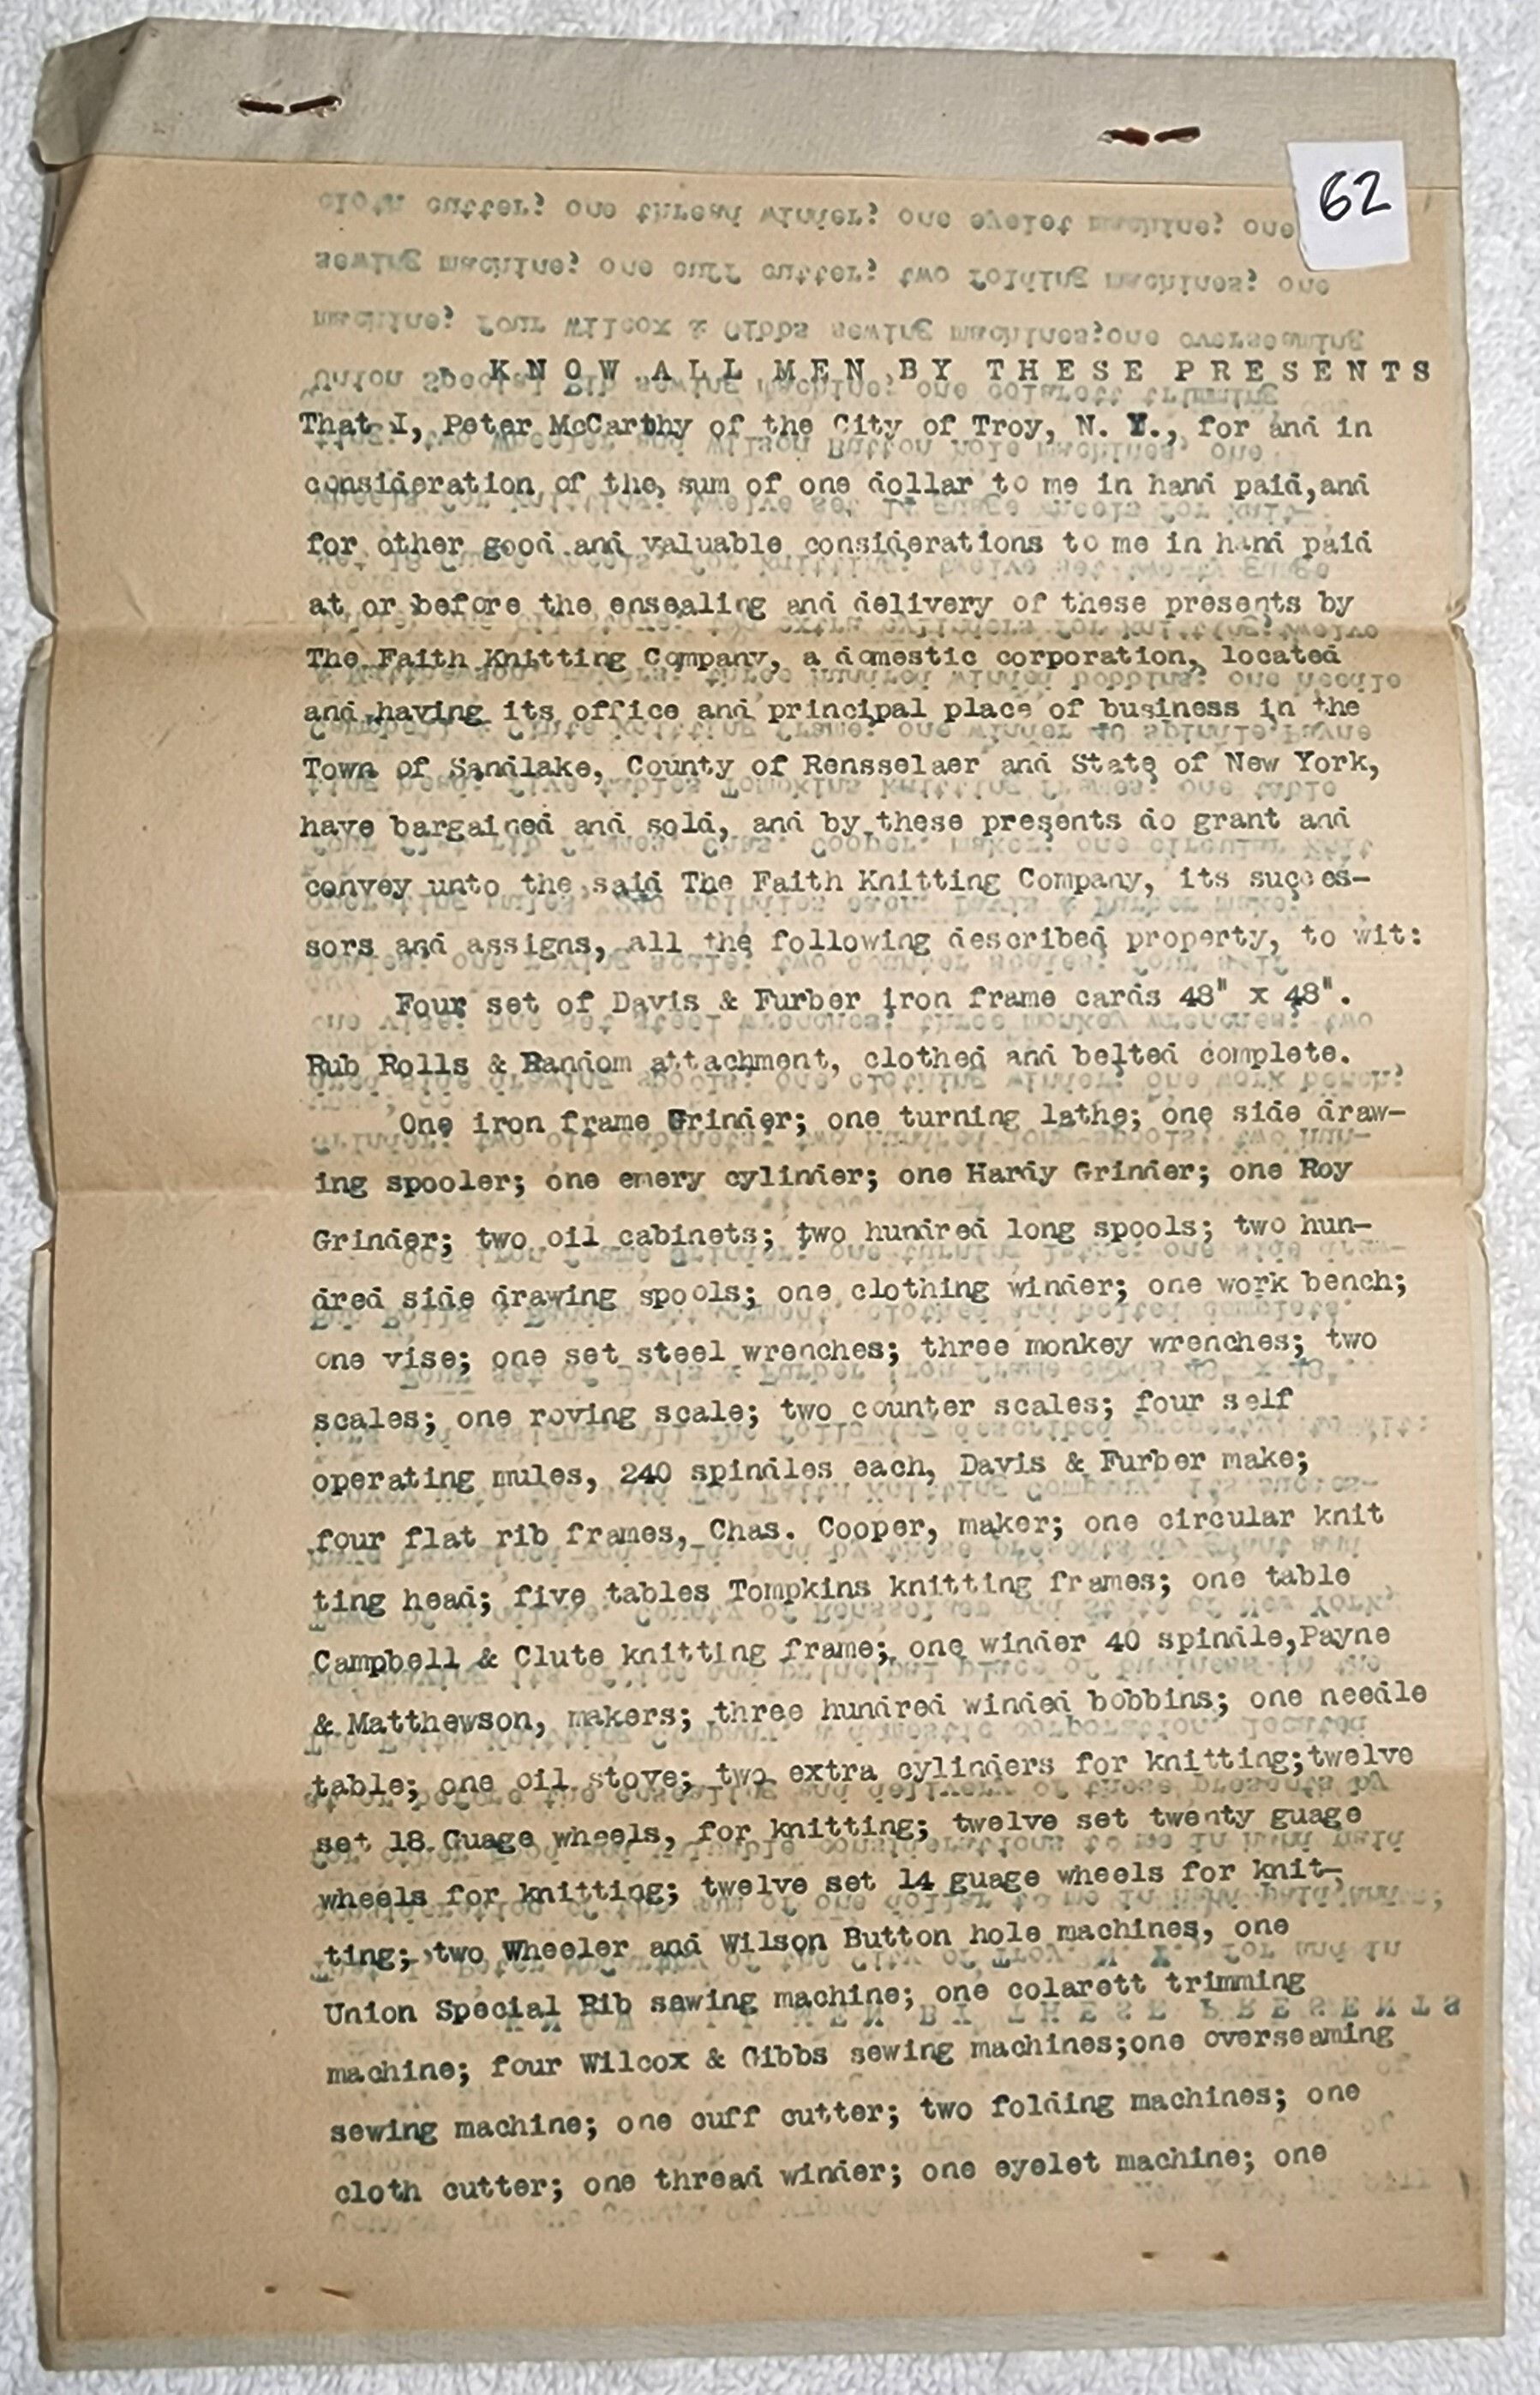 62
KNOW ALL MEN BY THESE PRESENTS
That I, Peter McCarthy of the City of Troy, N. Y., for and in
consideration of the, sum of one dollar to me in hand paid,and
for other good and valuable considerations to me in hand paid
at or before the ensealing and delivery of these presents by
The Faith Knitting Company, a domestic corporation, located
and having its office and principal place of business in the
Town of Sandlake, County of Rensselaer and State of New York,
have bargained and sold, and by these presents do grant and
convey unto the said The Faith Knitting Company, its succes-
sors and assigns, all the following described property, to wit:
Four set of Davis & Furber iron frame cards 48" x 48".
Rub Rolls & Random attachment, clothed and belted complete.
One iron frame Grinder; one turning lathe; one side draw-
ing spooler; one emery cylinder; one Hardy Grinder; one Roy
Grinder; two oil cabinets; two hundred long spools; two hun-
dred side drawing spools; one clothing winder; one work bench;
one vise; one set steel wrenches; three monkey wrenches; two
scales; one roving scale; two counter scales; four self
operating mules, 240 spindles each, Davis & Furber make;
four flat rib frames, Chas. Cooper, maker; one circular knit
ting head; five tables Tompkins knitting frames; one table
Campbell & Clute knitting frame; one winder 40 spindle,Payne
& Matthewson, makers; three hundred winded bobbins; one needle
table; one oil stove; two extra cylinders for knitting;twelve
set 18 Guage wheels, for knitting; twelve set twenty guage
wheels for knitting; twelve set 14 guage wheels for knit-
ting; two Wheeler and Wilson Button hole machines, one
Union Special Rib sewing machine; one colarett trimming
machine; four Wilcox & Gibbs sewing machines;one overseaming
sewing machine; one cuff cutter; two folding machines; one
cloth cutter; one thread winder; one eyelet machine; one